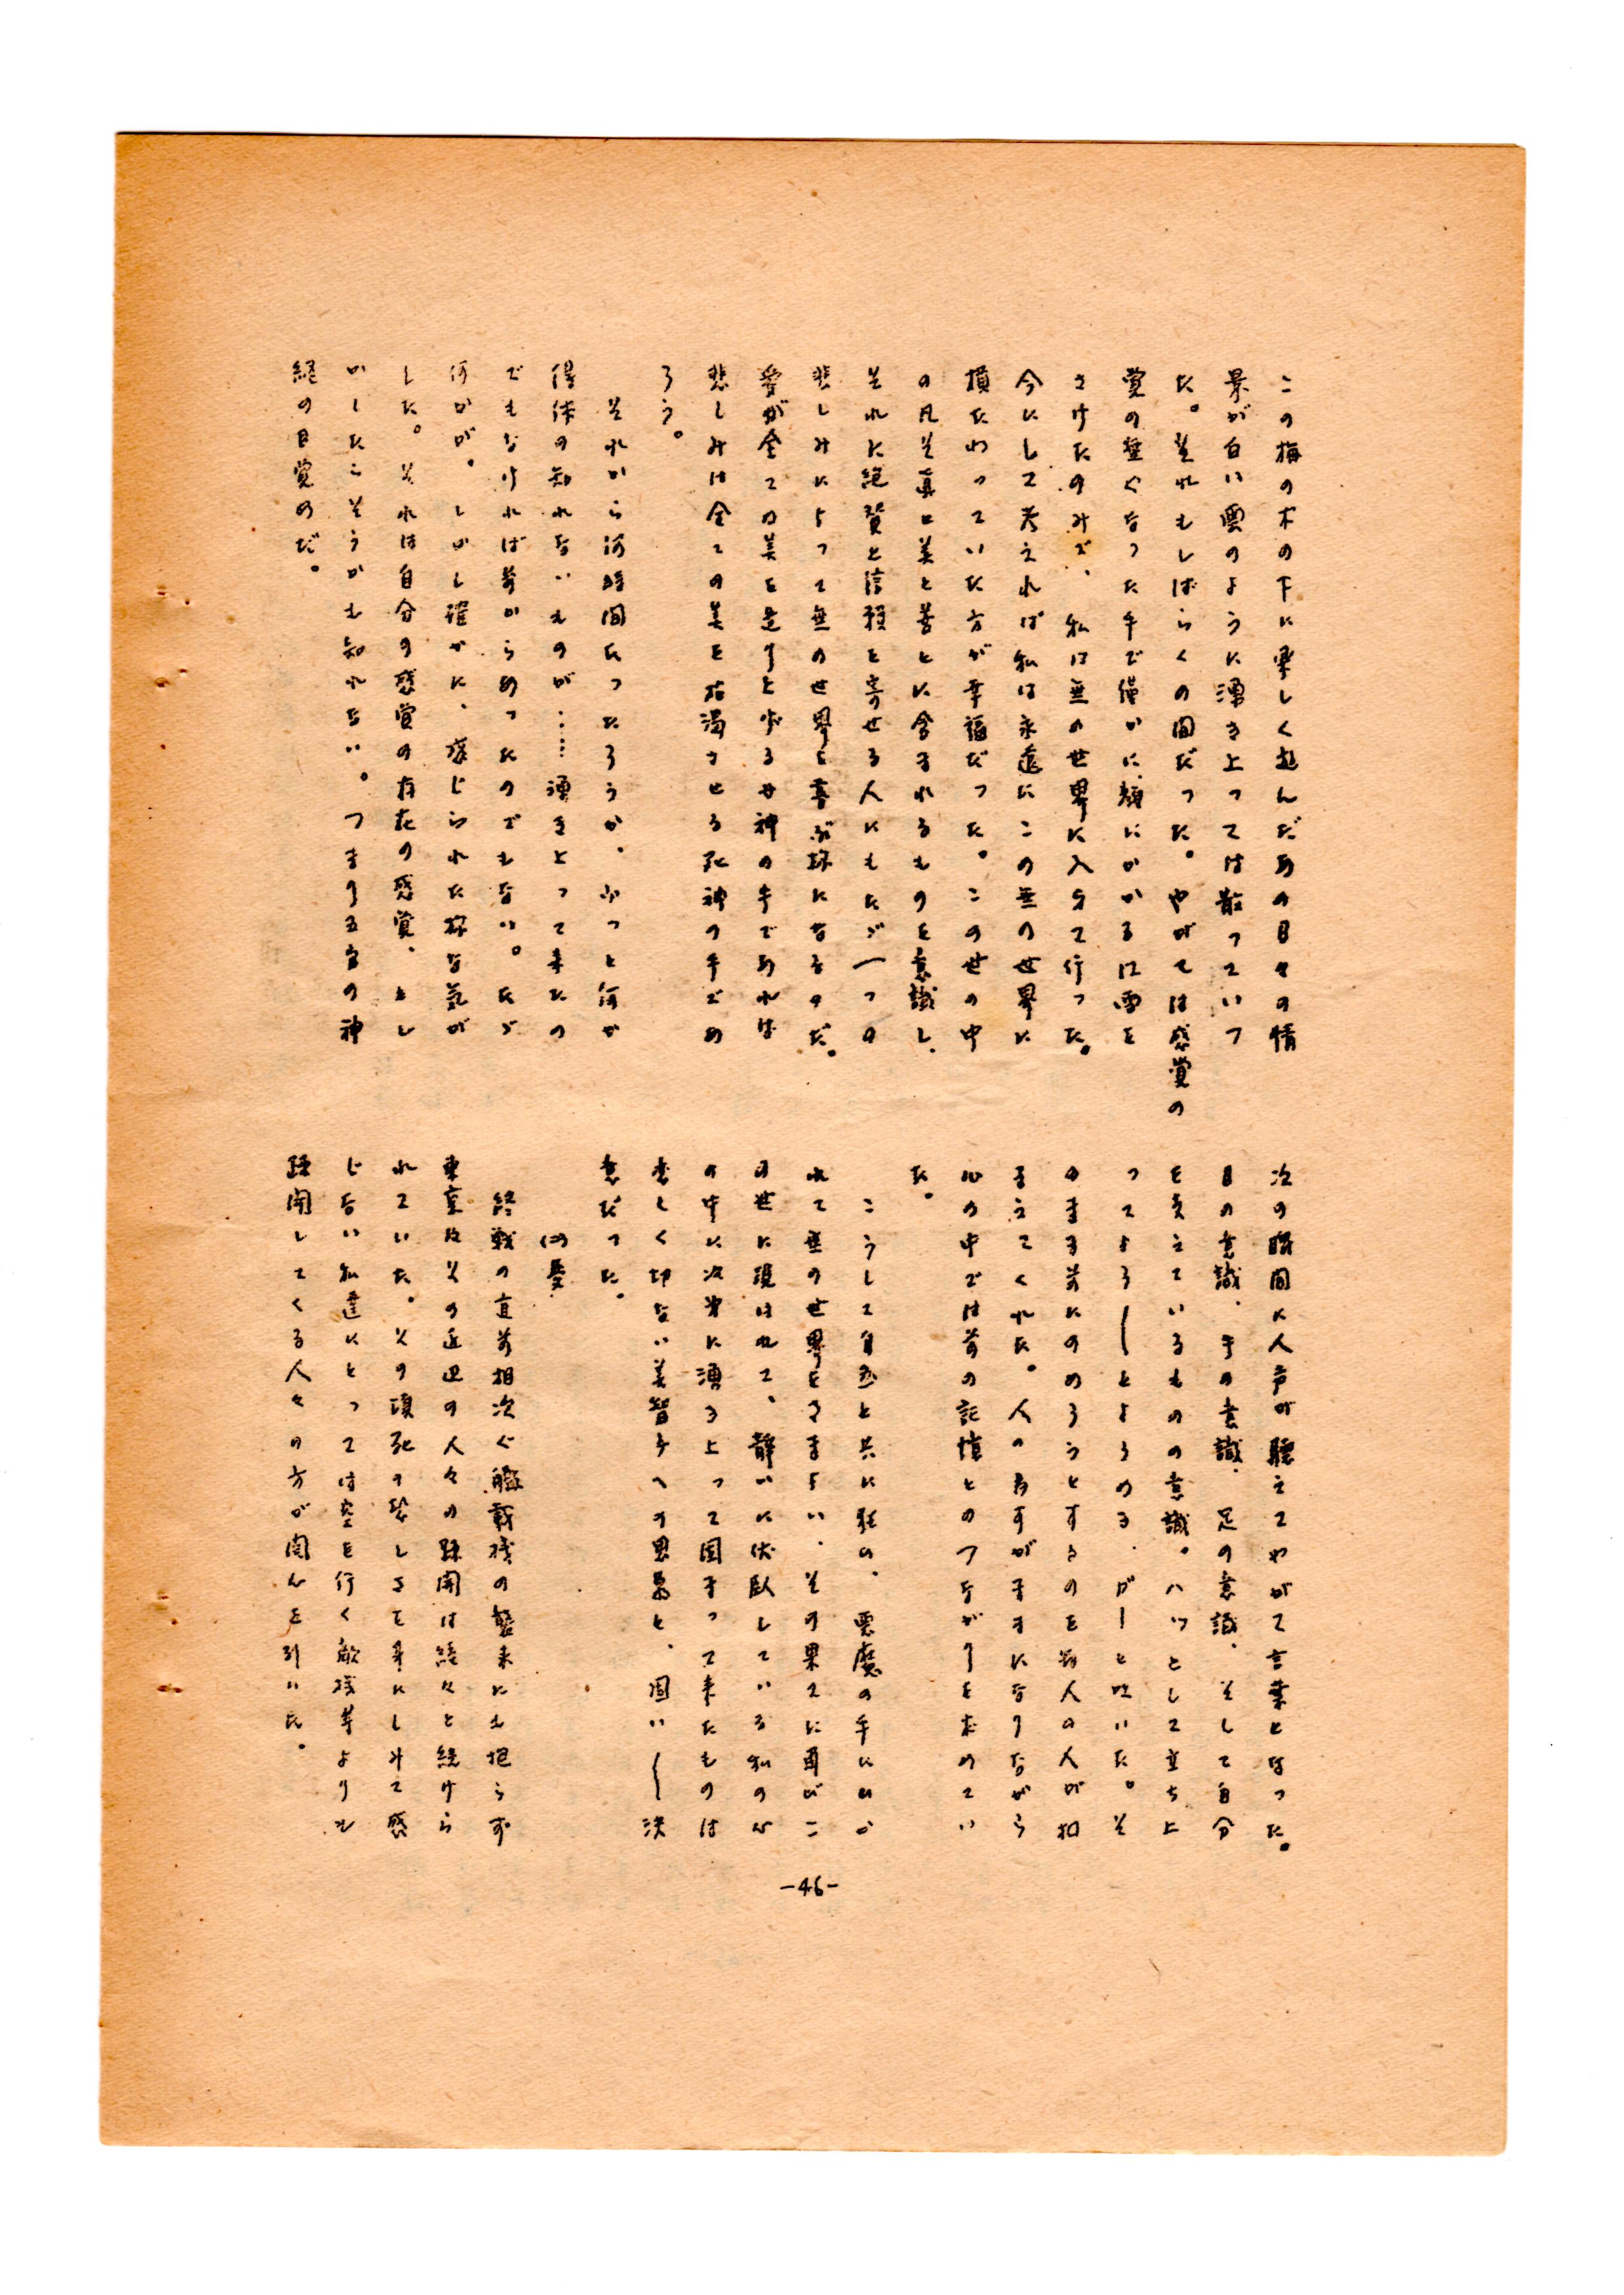 この梅の木の下に楽しく遊んだあの日々の情
景が白い雲のように湧き上っては散っていつ
た。それもしばらくの間だった。やがては感覚の
覚の無くなった手で僅かに顔にかかる雪を
さけたのみで、私は無の世界に入って行った。
今にして考えれば私は永遠にこの無の世界に
横たわっていた方が幸福だった。この世の中
の凡そ真と美と善とに含まれるものを意識し、
それに絶賛と信頼を寄せる人にもたゞ一つの
悲しみによって無の世界を喜ぶ様になるのだ。
愛が全ての美を造りとげる女神の手であれば
悲しみは全ての美を枯渇させる死神の手であ
ろう。
それから何時間たったろうか、ふっと何か
得体の知れないものが……湧きとって来たの
でもなければ夢からめったのでもない。たゞ
何かが、しかし確かに、感じられた様な気が
した。それは自分の感覚の存在の感覚、とし
かしたらそうかも知れない。つまり五官の神
経の目覚めだ。
次の瞬間に人声が聴えてやがて言葉となった。
目の意識、手の意識、足の意識、そして自分
を支えているものの意識。ハッとして立ち上
つてよろ―とよろめる、がーと吐いた。そ
のまま前にのめろうとするのを数人の人が抑
まえてくれた。人のなすがままになりながら
心の中では前の記憶とのつながりを求めてい
た。
こうして自然と共に狂い、悪魔の手にひか
れて無の世界をさまよい、その果てに再びこ
の世に現はれて、静かに伏臥している私の心
の中に次第に湧き上って固まって来たものは
悲しく切ない美智子への思慕と、固い―決
意だった。
(二)憂
終戦の直前相次ぐ艦載機の襲来にも抱らず
東京及その近辺の人々の疎開は続々と続けら
れていた。その頃死の恐しさを身にしみて感
じない私達にとっては空を行く敵機等よりも
疎開してくる人々の方が関心を引いた。
-46-